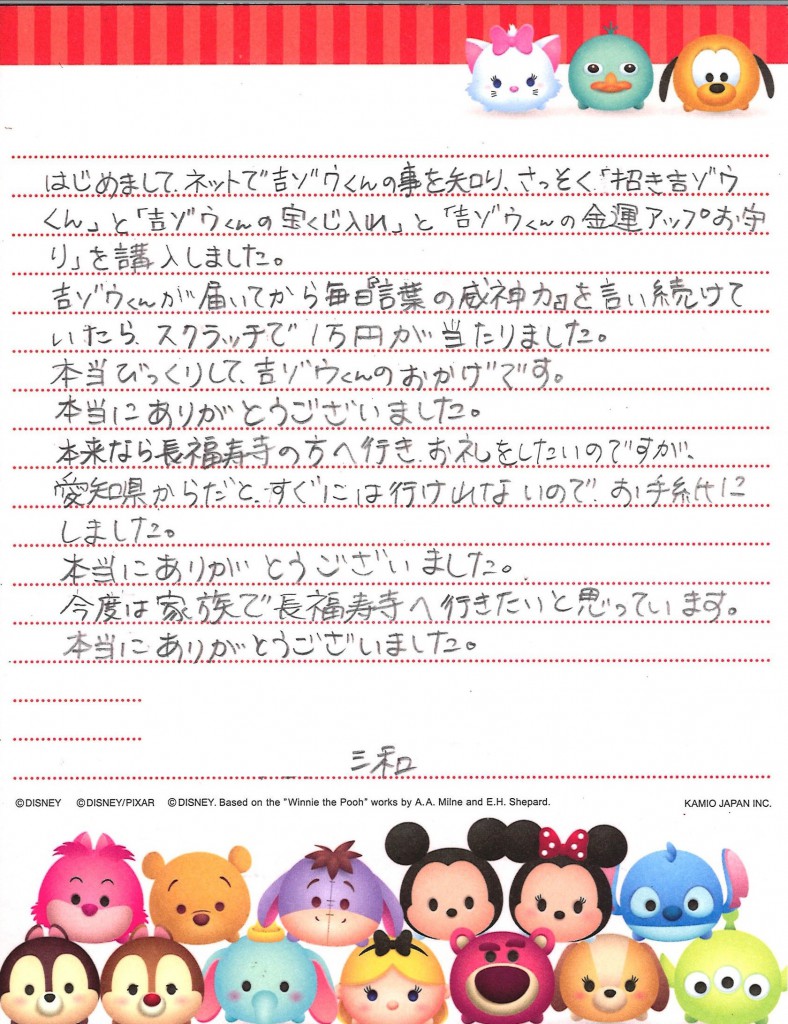 はじめまして、ネットで吉ゾウくんの事を知り、さっそく「招き吉ゾウ
くん」と「吉ゾウくんの宝くじ入れ」と「吉ゾウくんの金運アップお守
り」を購入しました。
吉ゾウくんが届いてから毎日『言葉の威神力』を言い続けて
いたら、スクラッチで1万円が当たりました。
本当びっくりして、吉ゾウくんのおかげです。
本当にありがとうございました。
本来なら長福寿寺の方へ行き、お礼をしたいのですが、
愛知県からだと、すぐには行けれないので、お手紙に
しました。
本当にありがとうございました。
今度は家族で長福寿寺へ行きたいと思っています。
本当にありがとうございました。
三和
©DISNEY ©DISNEY/PIXAR ©DISNEY. Based on the "Winnie the Pooh" works by A.A. Milne and E.H. Shepard. KAMIO JAPAN INC.